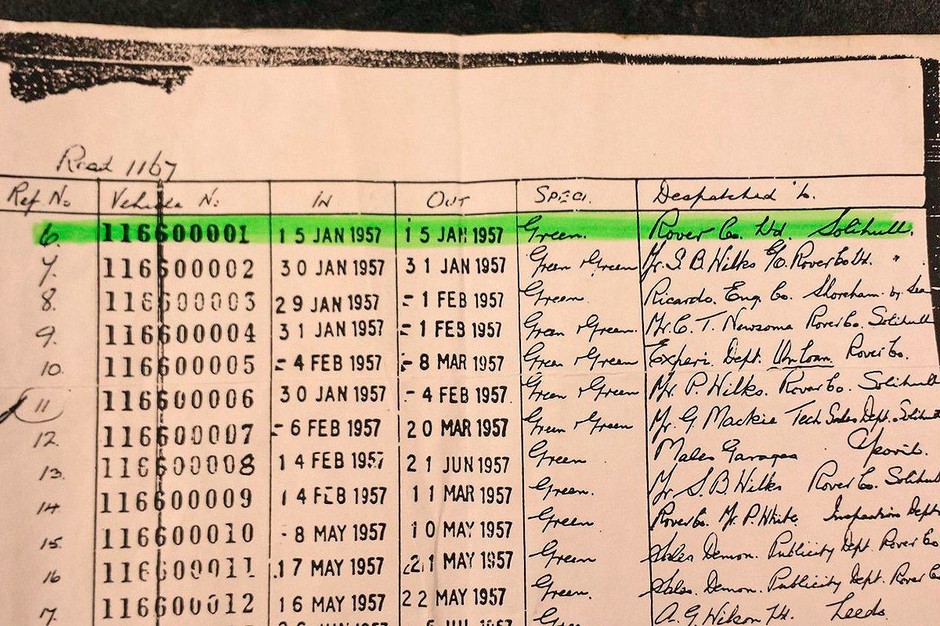 Prod 1167
Ref No Vehicle No. IN OUT SPECI. Despatched to.
6. 116600001 15 JAN 1957 15 JAN 1957 Green. Rover Co. Ltd. Solihull.
7. 116600002 30 JAN 1957 31 JAN 1957 Green & Green Mr. S. B. Wilks C/o. Rover Co Lt. "
8. 116600003 29 JAN 1957 - 1 FEB 1957 Green. Ricardo. Eng. Co. Shoreham by Sea
9. 116600004 31 JAN 1957 - 1 FEB 1957 Green & Green. Mr. C. T. Newsome Rover Co. Solihull
10. 116600005 - 4 FEB 1957 - 8 MAR 1957 Green & Green Experi. Dept. Un Loan. Rover Co.
11 116600006 30 JAN 1957 - 4 FEB 1957 Green & Green Mr. P. Wilks. Rover Co. Solihull
12. 116600007 - 6 FEB 1957 20 MAR 1957 Green & Green Mr. G Mackie Tech Sales Dept. Solihull
13. 116600008 14 FEB 1957 21 JUN 1957 Green. Males Garages Yeovil.
14. 116600009 14 FEB 1957 11 MAR 1957 Green. Mr S. B. Wilks Rover Co. Solihull
15. 116600010 - 8 MAY 1957 10 MAY 1957 Green. Rover Co. Mr. P. White. Inspection Dept
16 116600011 17 MAY 1957 21 MAY 1957 Green Sales Demon. Publicity Dept. Rover Co
17. 116600012 16 MAY 1957 22 MAY 1957 Green. Sales. Demon. Publicity Dept. Rover Co.
Green. A. G. Wilson Ltd. Leeds.